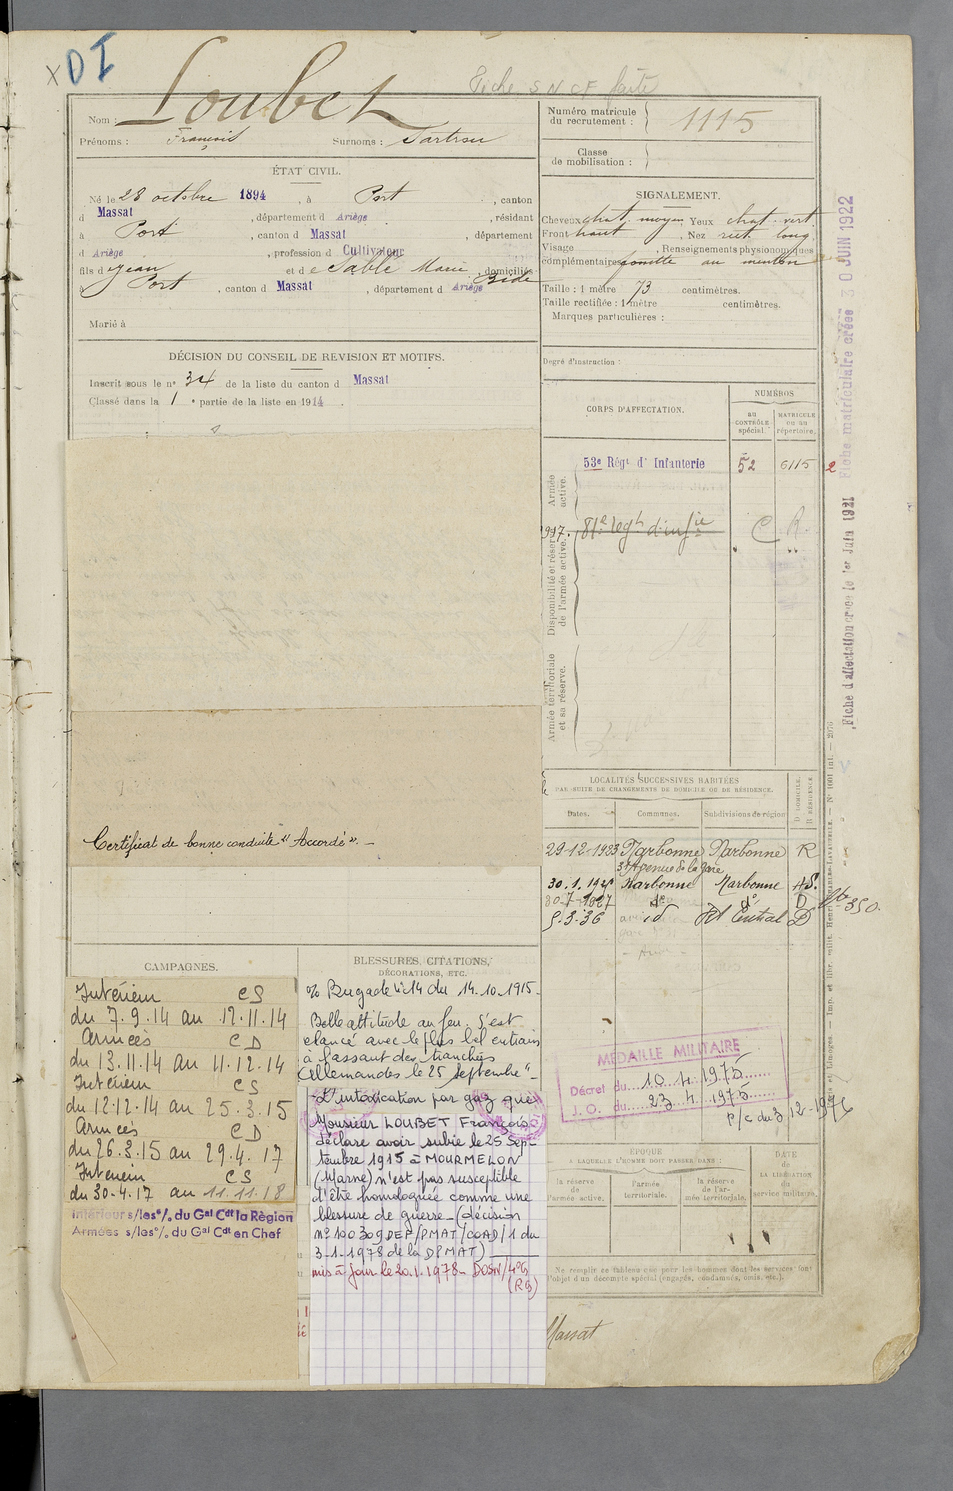 x D I
Fiche SNCF faite
Nom : Loubet
Prénoms : François Surnoms :
Numéro matricule
du recrutement : 1115
Classe
de mobilisation :
ÉTAT CIVIL.
Né le 28 octobre 1894, à Port, canton
d Massat, département d Ariège, résidant
à Port, canton d Massat, département
d Ariège, profession d Cultivateur
fils de Jean et de Sablé Marie, domiciliés
à Port, canton d Massat, département d Ariège
Marié à
SIGNALEMENT.
Cheveux chat. moyen Yeux chat. vert
Front haut, Nez rect. long
Visage , Renseignements physionomiques
complémentaires : au menton
Taille : 1 mètre 73 centimètres.
Taille rectifiée : 1 mètre centimètres.
Marques particulières :
Degré d'instruction :
DÉCISION DU CONSEIL DE REVISION ET MOTIFS.
Inscrit sous le n° 34 de la liste du canton d Massat
Classé dans la 1 e partie de la liste en 1914.
Certificat de bonne conduite "Accordé". -
CORPS D'AFFECTATION.
NUMÉROS
au
CONTRÔLE
spécial.
MATRICULE
ou au
répertoire.
Armée
active.
53e Régt d'Infanterie 52 6115 2
Disponibilité et réserve
de l'armée active.
81e regt d'infie C R
Armée territoriale
et sa réserve.
LOCALITÉS SUCCESSIVES HABITÉES
PAR SUITE DE CHANGEMENTS DE DOMICILE OU DE RÉSIDENCE.
Dates. Communes. Subdivisions de région D. DOMICILE. R. RÉSIDENCE.
29-12-1923 Narbonne Narbonne R
Avenue de la Gare
30.1.192 Narbonne Narbonne
30-7-1927 do do D
5.3.36 id Rt Central D
350.
CAMPAGNES.
Intérieur CS
du 7.9.14 au 12.11.14
Armées CD
du 13.11.14 au 11.12.14
Intérieur CS
du 12.12.14 au 25.3.15
Armées CD
du 26.3.15 au 29.4.17
Intérieur CS
du 30.4.17 au 11.11.18
Intérieur s/les °/. du Gal Cdt la Région
Armées s/les °/. du Gal Cdt en Chef
BLESSURES, CITATIONS,
DÉCORATIONS, ETC.
% Brigade n°14 du 14.10.1915-
Belle attitude au feu. S'est
élancé avec le plus bel entrain
à l'assaut des tranchées
Allemandes le 25 septembre" -
L'intoxication par gaz que
Monsieur LOUBET François
déclare avoir subie le 25 Sep-
tembre 1915 à MOURMELON
(Marne) n'est pas susceptible
d'être homologuée comme une
blessure de guerre - (décision
n° 100309 DEF/PMAT/COAD/1 du
3-1-1978 de la DPMAT)
mis à jour le 20.1.1978-
MÉDAILLE MILITAIRE
Décret du 10.4.1975
J. O. du 23.4.1975
p/c du 3.12-1976
ÉPOQUE
À LAQUELLE L'HOMME DOIT PASSER DANS :
la réserve
de
l'armée active.
l'armée
territoriale.
la réserve
de l'ar-
mée territoriale.
DATE
de
LA LIBÉRATION
du
service militaire.
Ne remplir ce tableau que pour les hommes dont les services font
l'objet d'un décompte spécial (engagés, condamnés, omis, etc.).
Massat
Fiche matriculaire créée 30 JUIN 1922
Fiche d'affectation créée le 1er Juin 1921